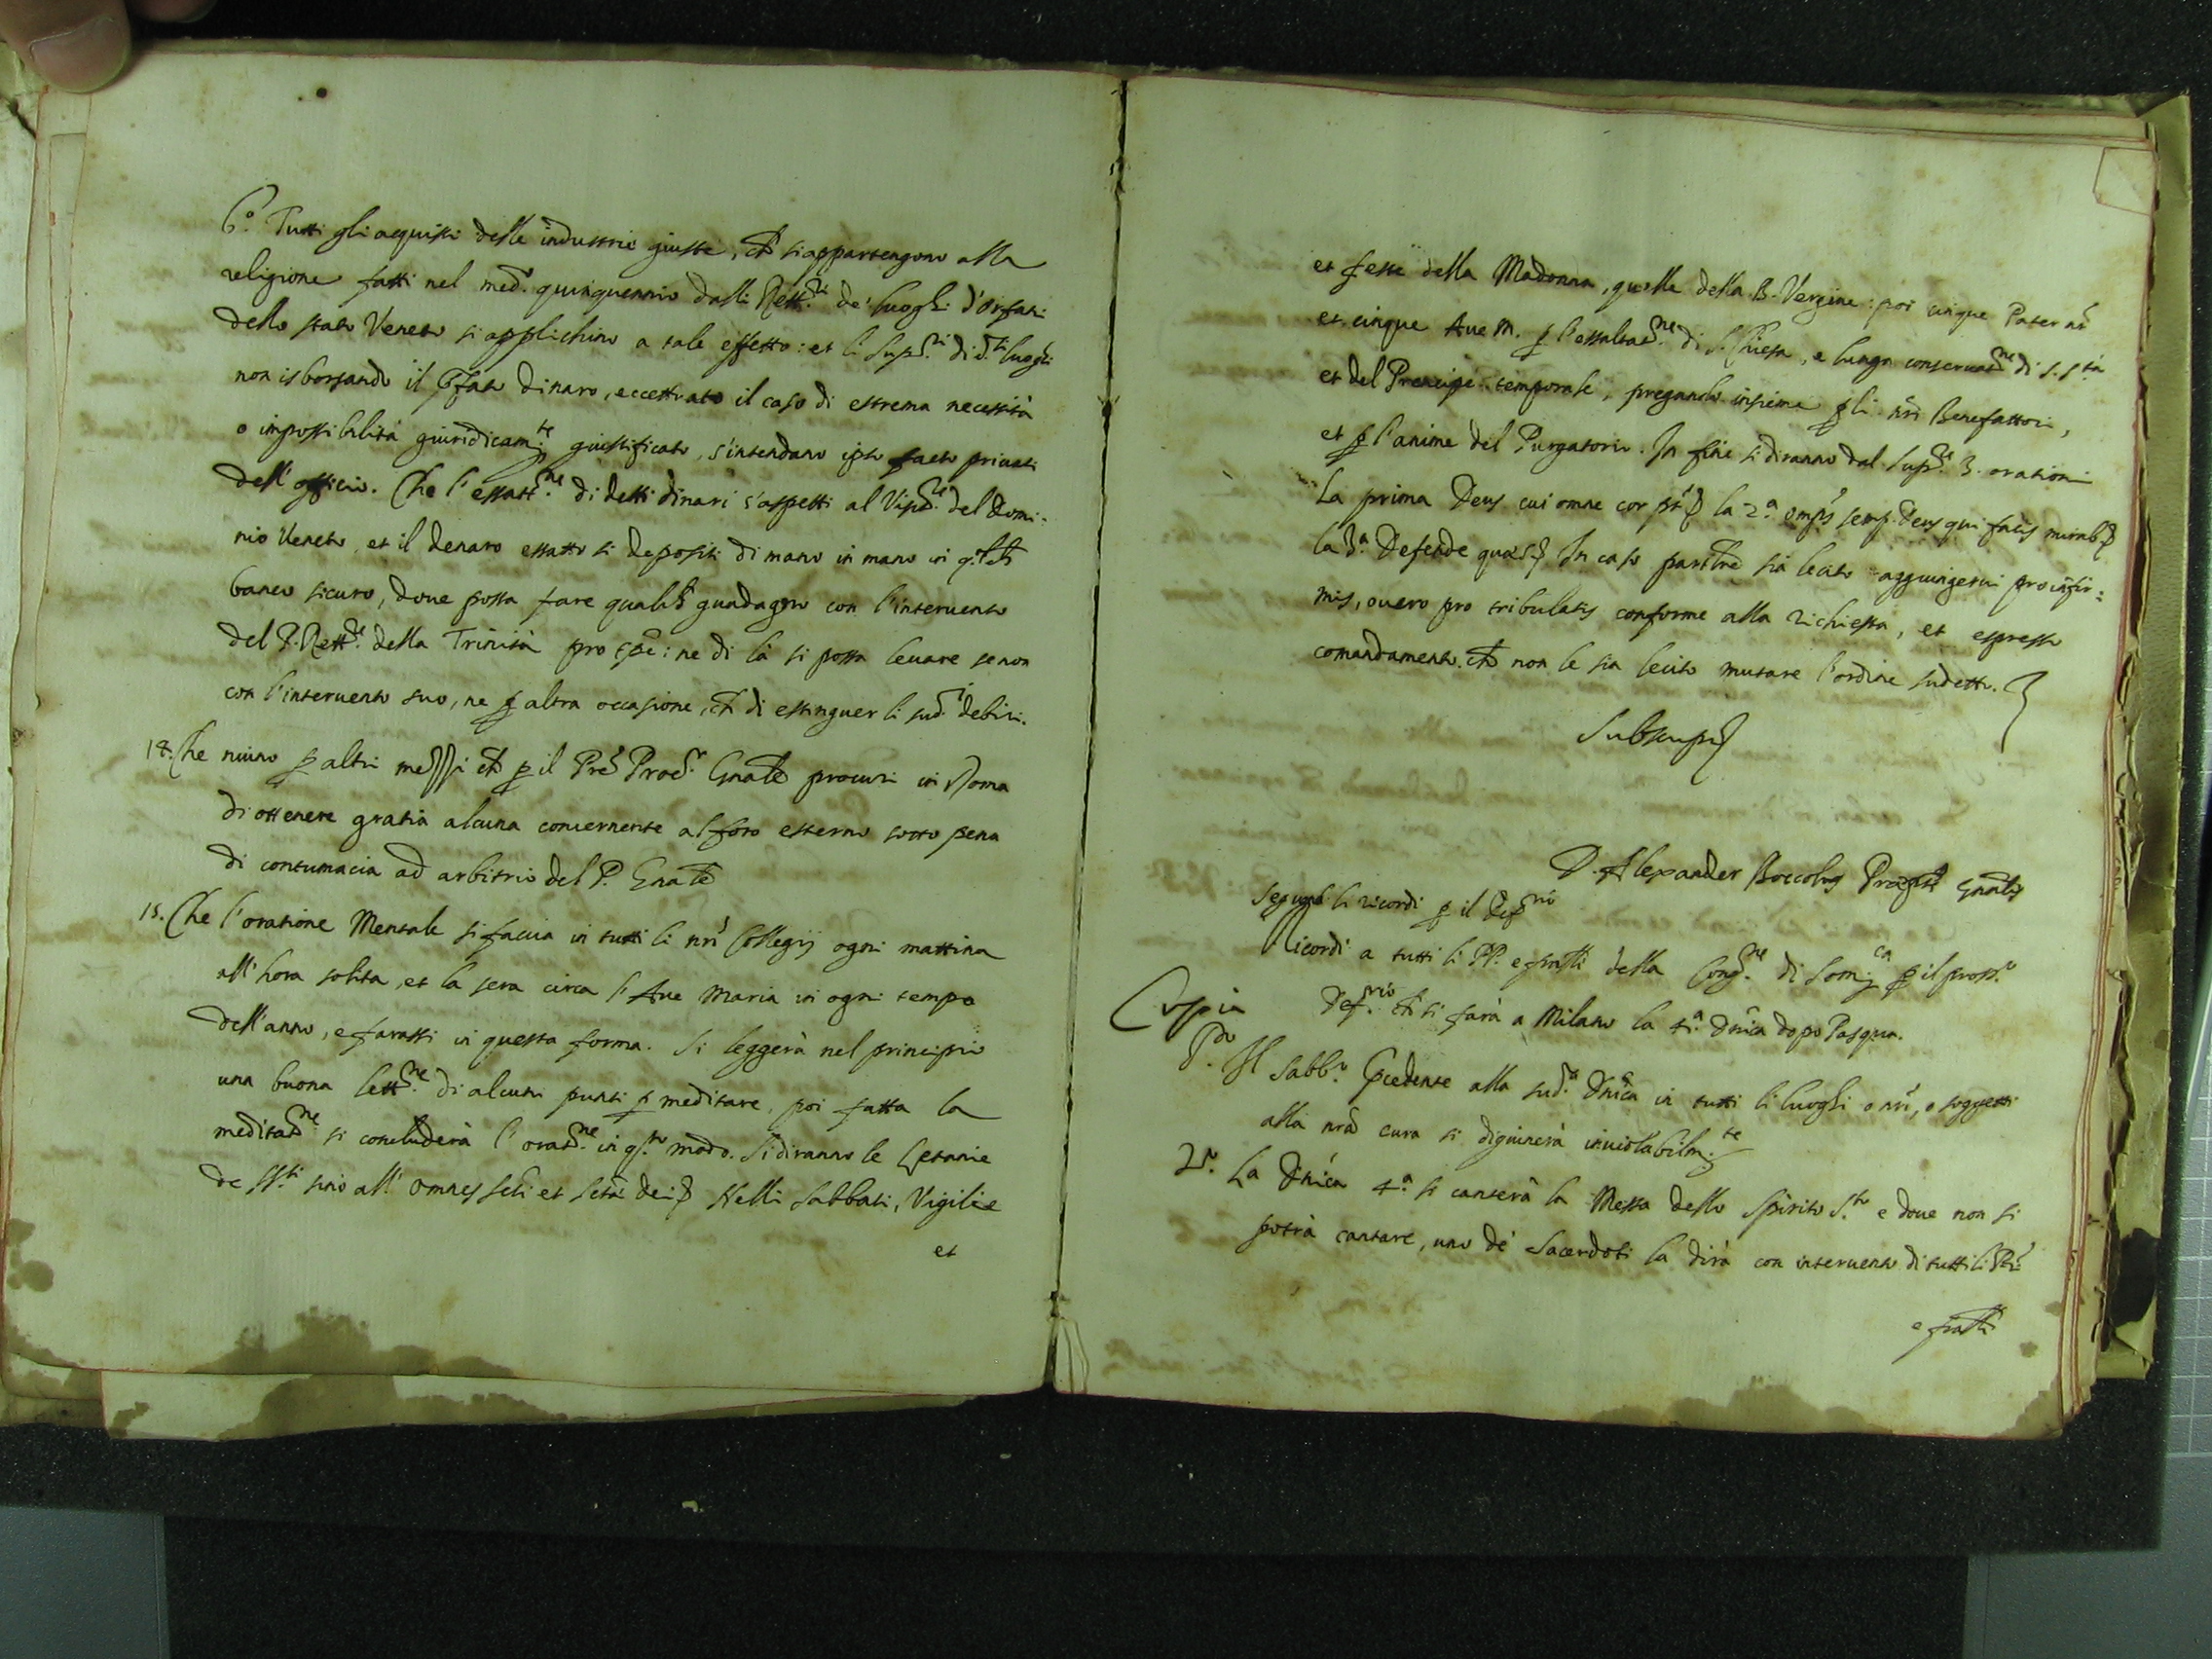 6.° Tutti gli acquisti delle industrie giuste, ch̃ si appartengono alla
religione fatti nel med.° quinquennio dalli Rett.ri de' luoghi d'orfani
dello stato Veneto si applichino a tale effetto: et li Sup.ri di d.ti luoghi
non isborsando il p̃fato dinaro, eccettuato il caso di estrema necessità
o impossibilità giuridicam.te giustificato, s'intendano ipso facto privati
dell'officio. Che l'essatt.ne di detti dinari s'aspetti al Vip.re del Domi-
nio Veneto, et il denaro essatto si depositi di mano in mano in q.lch̃
banco sicuro, doue possa fare qualch̃ guadagno con l'interuento
del P. Rett.re della Trinità pro tp̃e: ne di là si possa leuare se non
con l'interuento suo, ne p altra occasione, ch̃ di estinguer li sud.i debiti.
14. Che niuno p altri mezzi ch̃ p il Prẽ Proc.r Gñale procuri in Roma
di ottenere gratia alcuna concernente al foro esterno sotto pena
di contumacia ad arbitrio del P. Gñale
15. Che l'oratione Mentale si faccia in tutti li nr̃i Collegij ogni mattina
all'hora solita, et la sera circa l'Aue Maria in ogni tempo
dell'anno, e farassi in questa forma. Si leggerà nel principio
una buona lett.ne di alcuni punti p meditare, poi fatta la
meditat.ne si concluderà l'orat.ne in q.to modo. Si diranno le Letanie
de SS.ti sino all'omnes scti et sctã dei Nelli Sabbati, Vigilie
et
et feste della Madonna, quelle della B. Vergine: poi cinque Pater nr̃
et cinque Aue M. p l'essaltat.ne di S. Chiesa, e lunga conseruat.ne di S. S.tà
et del Prencipe temporale, pregando insieme p li nr̃i Benefattori,
et p l'anime del Purgatorio. In fine si diranno dal Sup.re 3. orationi
La prima Deus cui omne cor pt̃ la 2.a omp̃s semp. Deus qui facis mirab
la 3.a Defende quæs In caso parĩtre sia lecito aggiungerui pro infir-
mis, ouero pro tribulatis conforme alla richiesta, et espresso
comandamento. ch̃ non le sia lecito mutare l'ordine sudetto.
Subscrip
D. Alexander Boccolus Præpts Gñalis
Seguono li ricordi p il Def.rio
Ricordi a tutti li PP. e fratelli della Cong.ne di Som.ca p il pross.o
Copia Def.rio ch̃ si farà a Milano la 4.a Dñica dopo Pasqua.
P.mo Il Sabb.o p̃cedente alla sud.a Dñica in tutti li luoghi o nr̃i, o soggetti
alla nrã cura si digiunerà inuiolabilm.te
2.o La Dñica 4.a si canterà la Messa dello Spirito S.to e doue non si
potrà cantare, uno de' Sacerdoti la dirà con interuento di tutti li Prĩ
e fratlli